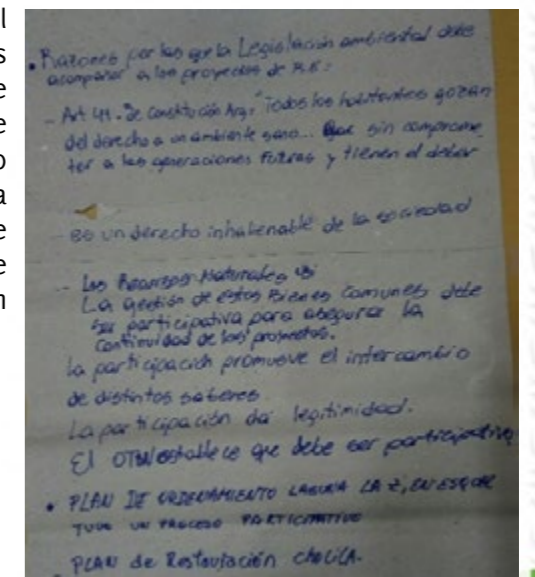 l
s
e
e
o
a
e
e
n
• Razones por las que la Legislación ambiental debe
acompañar a los proyectos de R.E:
- Art 41. de Constitución Arg. "Todos los habitantes gozan
del derecho a un ambiente sano... sin comprome
ter a las generaciones Futuras y tienen el deber
- es un derecho inhalienable de la sociedad
- Los Recursos Naturales
La gestión de estos Bienes Comunes debe
ser participativa para asegurar la
continuidad de los proyectos.
la participación promueve el intercambio
de distintos saberes.
La participación da legitimidad.
El OTBN establece que debe ser participativo
• PLAN DE ORDENAMIENTO LAGUNA LA Z, EN ESQUEL
TUVO UN PROCESO PARTICIPATIVO
PLAN de Restauración CHOLILA.